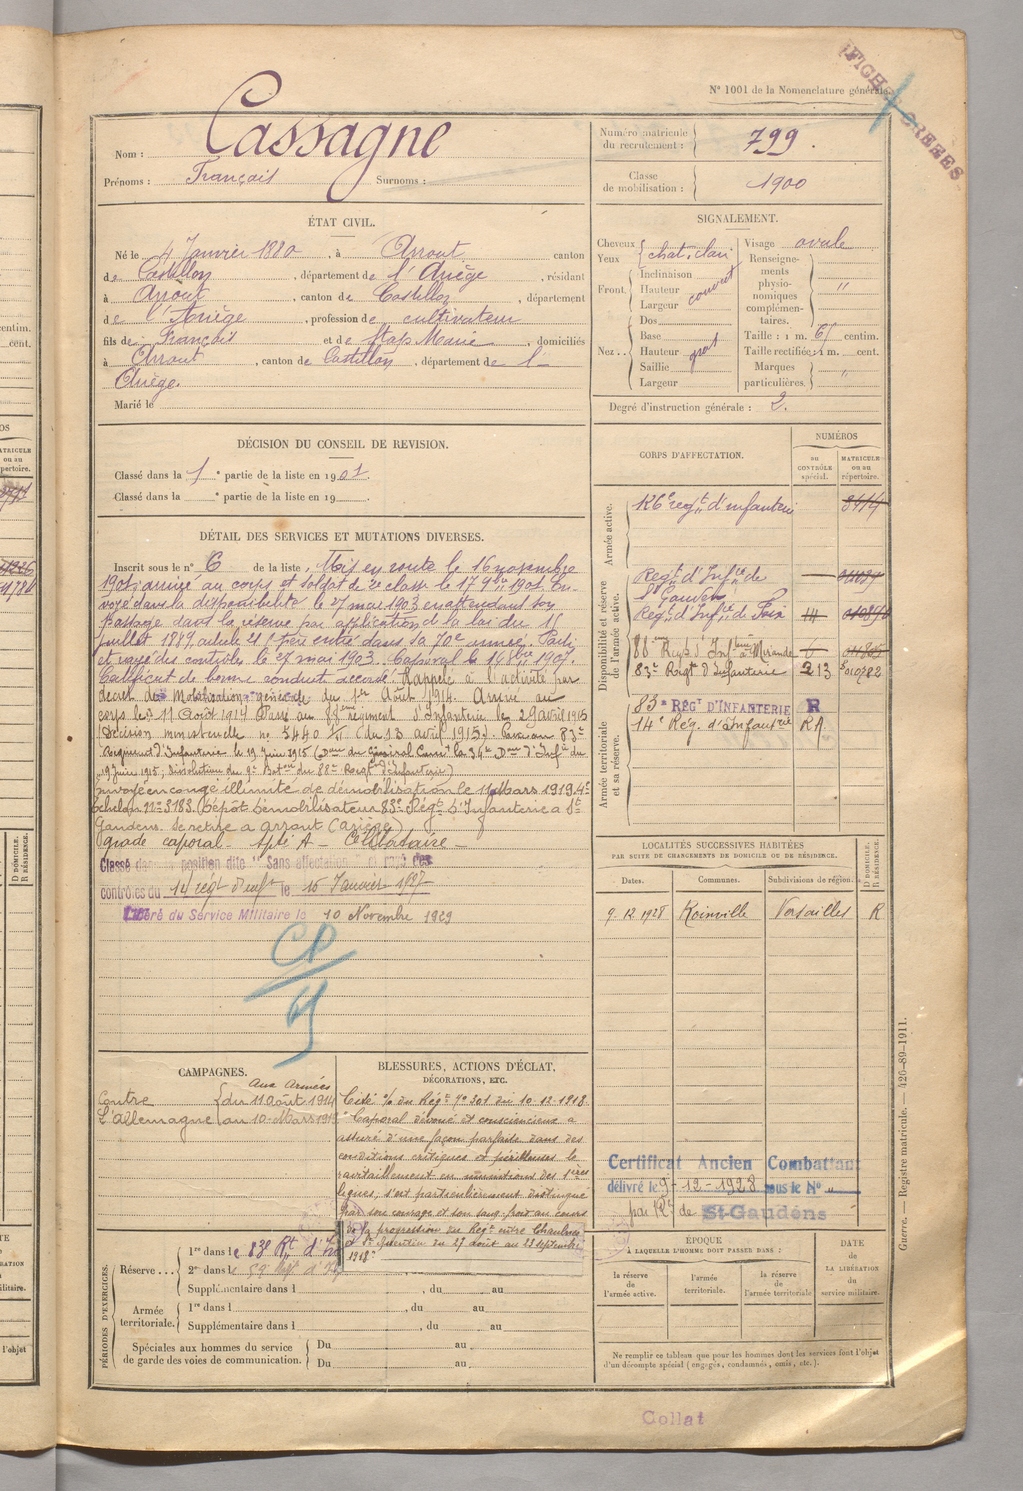 N° 1001 de la Nomenclature générale.
FICHES CREEES
Nom : Cassagne
Prénoms : Français Surnoms :
Numéro matricule du recrutement : 799.
Classe de mobilisation : 1900
ÉTAT CIVIL.
Né le 4 Janvier 1880, à Arrout canton
de Castillon, département de l'Ariège, résidant
à Arrout, canton de Castillon, département
de l'Ariège, profession de cultivateur
fils de Français et de Marie, domiciliés
à Arrout, canton de Castillon, département de l'
Ariège.
Marié le
SIGNALEMENT.
Cheveux
Yeux chat. clair
Front. Inclinaison
Hauteur
Largeur
Nez.. Dos
Base
Hauteur
Saillie
Largeur
Visage ovale
Renseigne-
ments
physio-
nomiques
complémen-
taires. "
Taille : 1 m. 61 centim.
Taille rectifiée : 1 m. cent.
Marques
particulières. "
Degré d'instruction générale : 2.
DÉCISION DU CONSEIL DE REVISION.
Classé dans la 1e partie de la liste en 1901.
Classé dans la e partie de la liste en 19
DÉTAIL DES SERVICES ET MUTATIONS DIVERSES.
Inscrit sous le n° 6 de la liste. Mis en route le 16 novembre
1901, arrivé au corps et soldat de 2e classe le 17 9bre 1901. En-
voyé dans la disponibilité le 27 mai 1903 en attendant son
passage dans la réserve par application de la loi du 15
juillet 1889, article 21
et rayé des contrôles le 27 mai 1903. Caporal le 1907.
Certificat de bonne conduite accordé. Rappelé à l'activité par
décret de Mobilisation générale du 1er Août 1914. Arrivé au
corps le 11 Août 1914 Passé au 88ème régiment d'Infanterie le 29 avril 1915
(Décision ministérielle no 5440 (du 13 avril 1915). Passé au 83e
Régiment d'Infanterie le 19 juin 1915 (Don du Général Comt la 34e Don d'Infie du
19 juin 1915, Dissolution du 9e Baton du 88e Regt d'Infanterie)
envoyé en congé illimité de démobilisation le 11 Mars 1919. 4e
échelon n° 3183 (Dépôt démobilisateur 83e Régt d'Infanterie à St
Gaudens. Se retire à Arrout (Ariège)
grade caporal
Classé dans la position dite "Sans affectation" et rayé des
contrôles du 14 régt d'inft le 15 Janvier 1927
Libéré du Service Militaire le 10 Novembre 1929
CORPS D'AFFECTATION.
NUMÉROS
au CONTRÔLE spécial.
MATRICULE ou au répertoire.
Armée active.
126e regt d'infanterie
Disponibilité et réserve de l'armée active.
Regt d'Infie de St Gaudens
Regt d'Infie de Foix 14
88ème Regt d'Infterie à Mirande
83e Regt d'Infanterie 213
Armée territoriale et sa réserve.
83e RÉGt D'INFANTERIE R
14e Rég. d'Infantrie RA
LOCALITÉS SUCCESSIVES HABITÉES
PAR SUITE DE CHANGEMENTS DE DOMICILE OU DE RÉSIDENCE.
Dates. Communes. Subdivisions de région. D DOMICILE. R RÉSIDENCE.
9.12.1928 Versailles R
CAMPAGNES.
Aux Armées
Contre du 11 août 1914
L'Allemagne au 10 Mars 1919
BLESSURES, ACTIONS D'ÉCLAT, DÉCORATIONS, ETC.
Cité % du Régt n° 201 du 10.12.1918.
"Caporal dévoué et consciencieux a
assuré d'une façon parfaite dans des
conditions critiques et périlleuses le
ravitaillement en munitions des 1ères
lignes, s'est particulièrement distingué
par son courage et son sang-froid au cours
de la progression du Régt entre Chaulnes
et St Quentin du 27 août au 23 septembre
1918"
Certificat Ancien Combattant
délivré le 9-12-1928 sous le N° "
par Rt de St-Gaudens
PÉRIODES D'EXERCICES.
Réserve... 1re dans le 83e Rt d'Inf
2e dans le
Supplémentaire dans l , du au
Armée territoriale. 1re dans l , du au
Supplémentaire dans l , du au
Spéciales aux hommes du service
de garde des voies de communication. Du au
Du au
ÉPOQUE
À LAQUELLE L'HOMME DOIT PASSER DANS :
la réserve de l'armée active.
l'armée territoriale.
la réserve de l'armée territoriale
DATE de LA LIBÉRATION du service militaire.
Ne remplir ce tableau que pour les hommes dont les services font l'objet
d'un décompte spécial (engagés, condamnés, omis, etc.).
Guerre. — Registre matricule. — 426-89-1911.
Collat